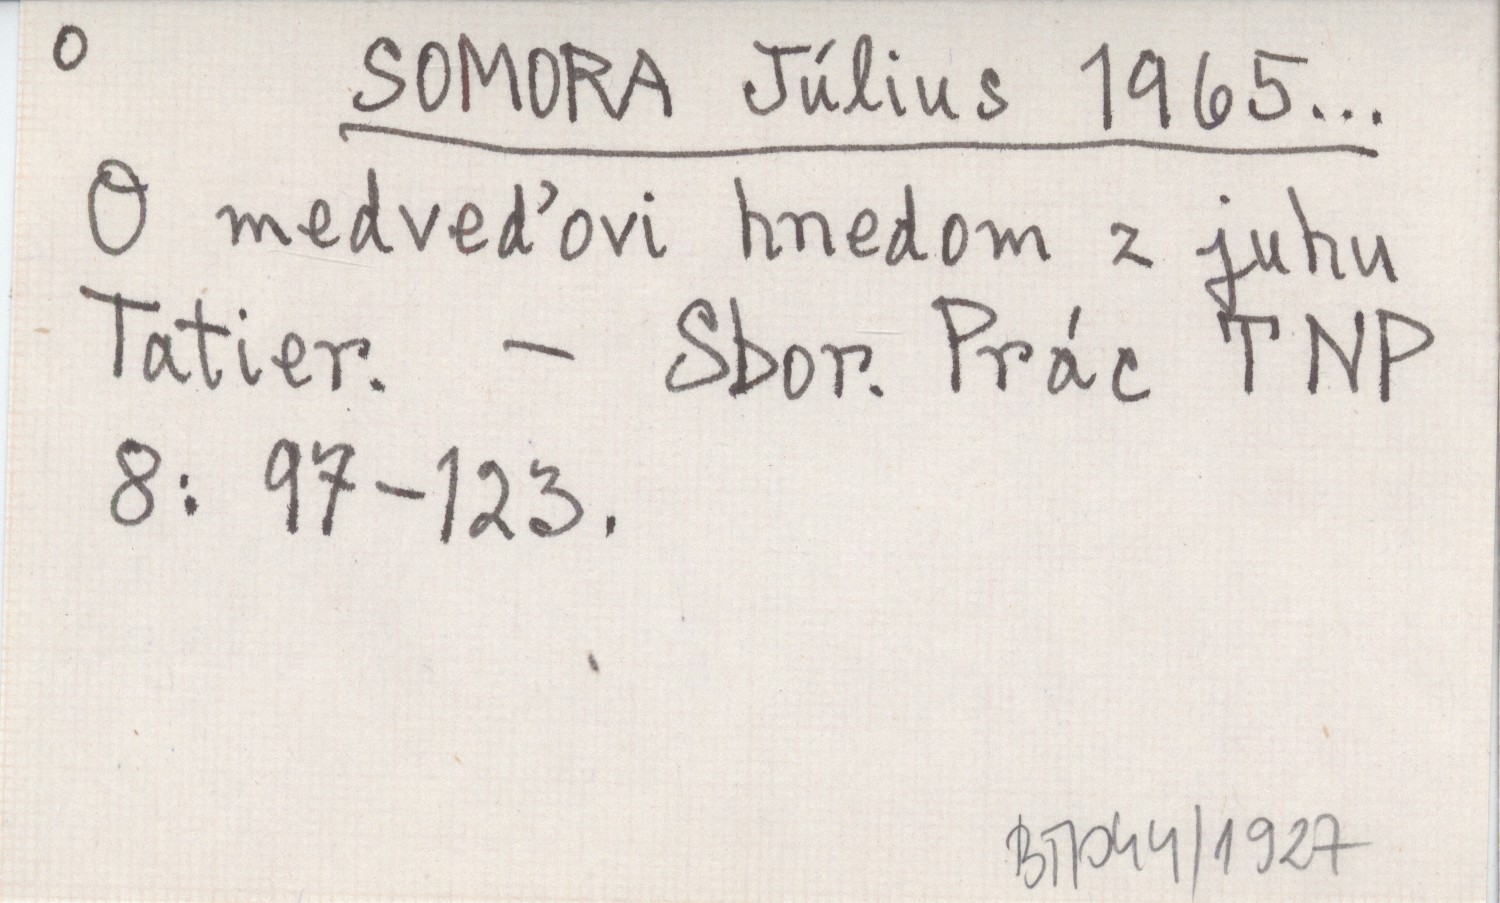 o
SOMORA Július 1965...
O medveďovi hnedom z juhu
Tatier. – Sbor. Prác TNP
8: 97–123.
/1927